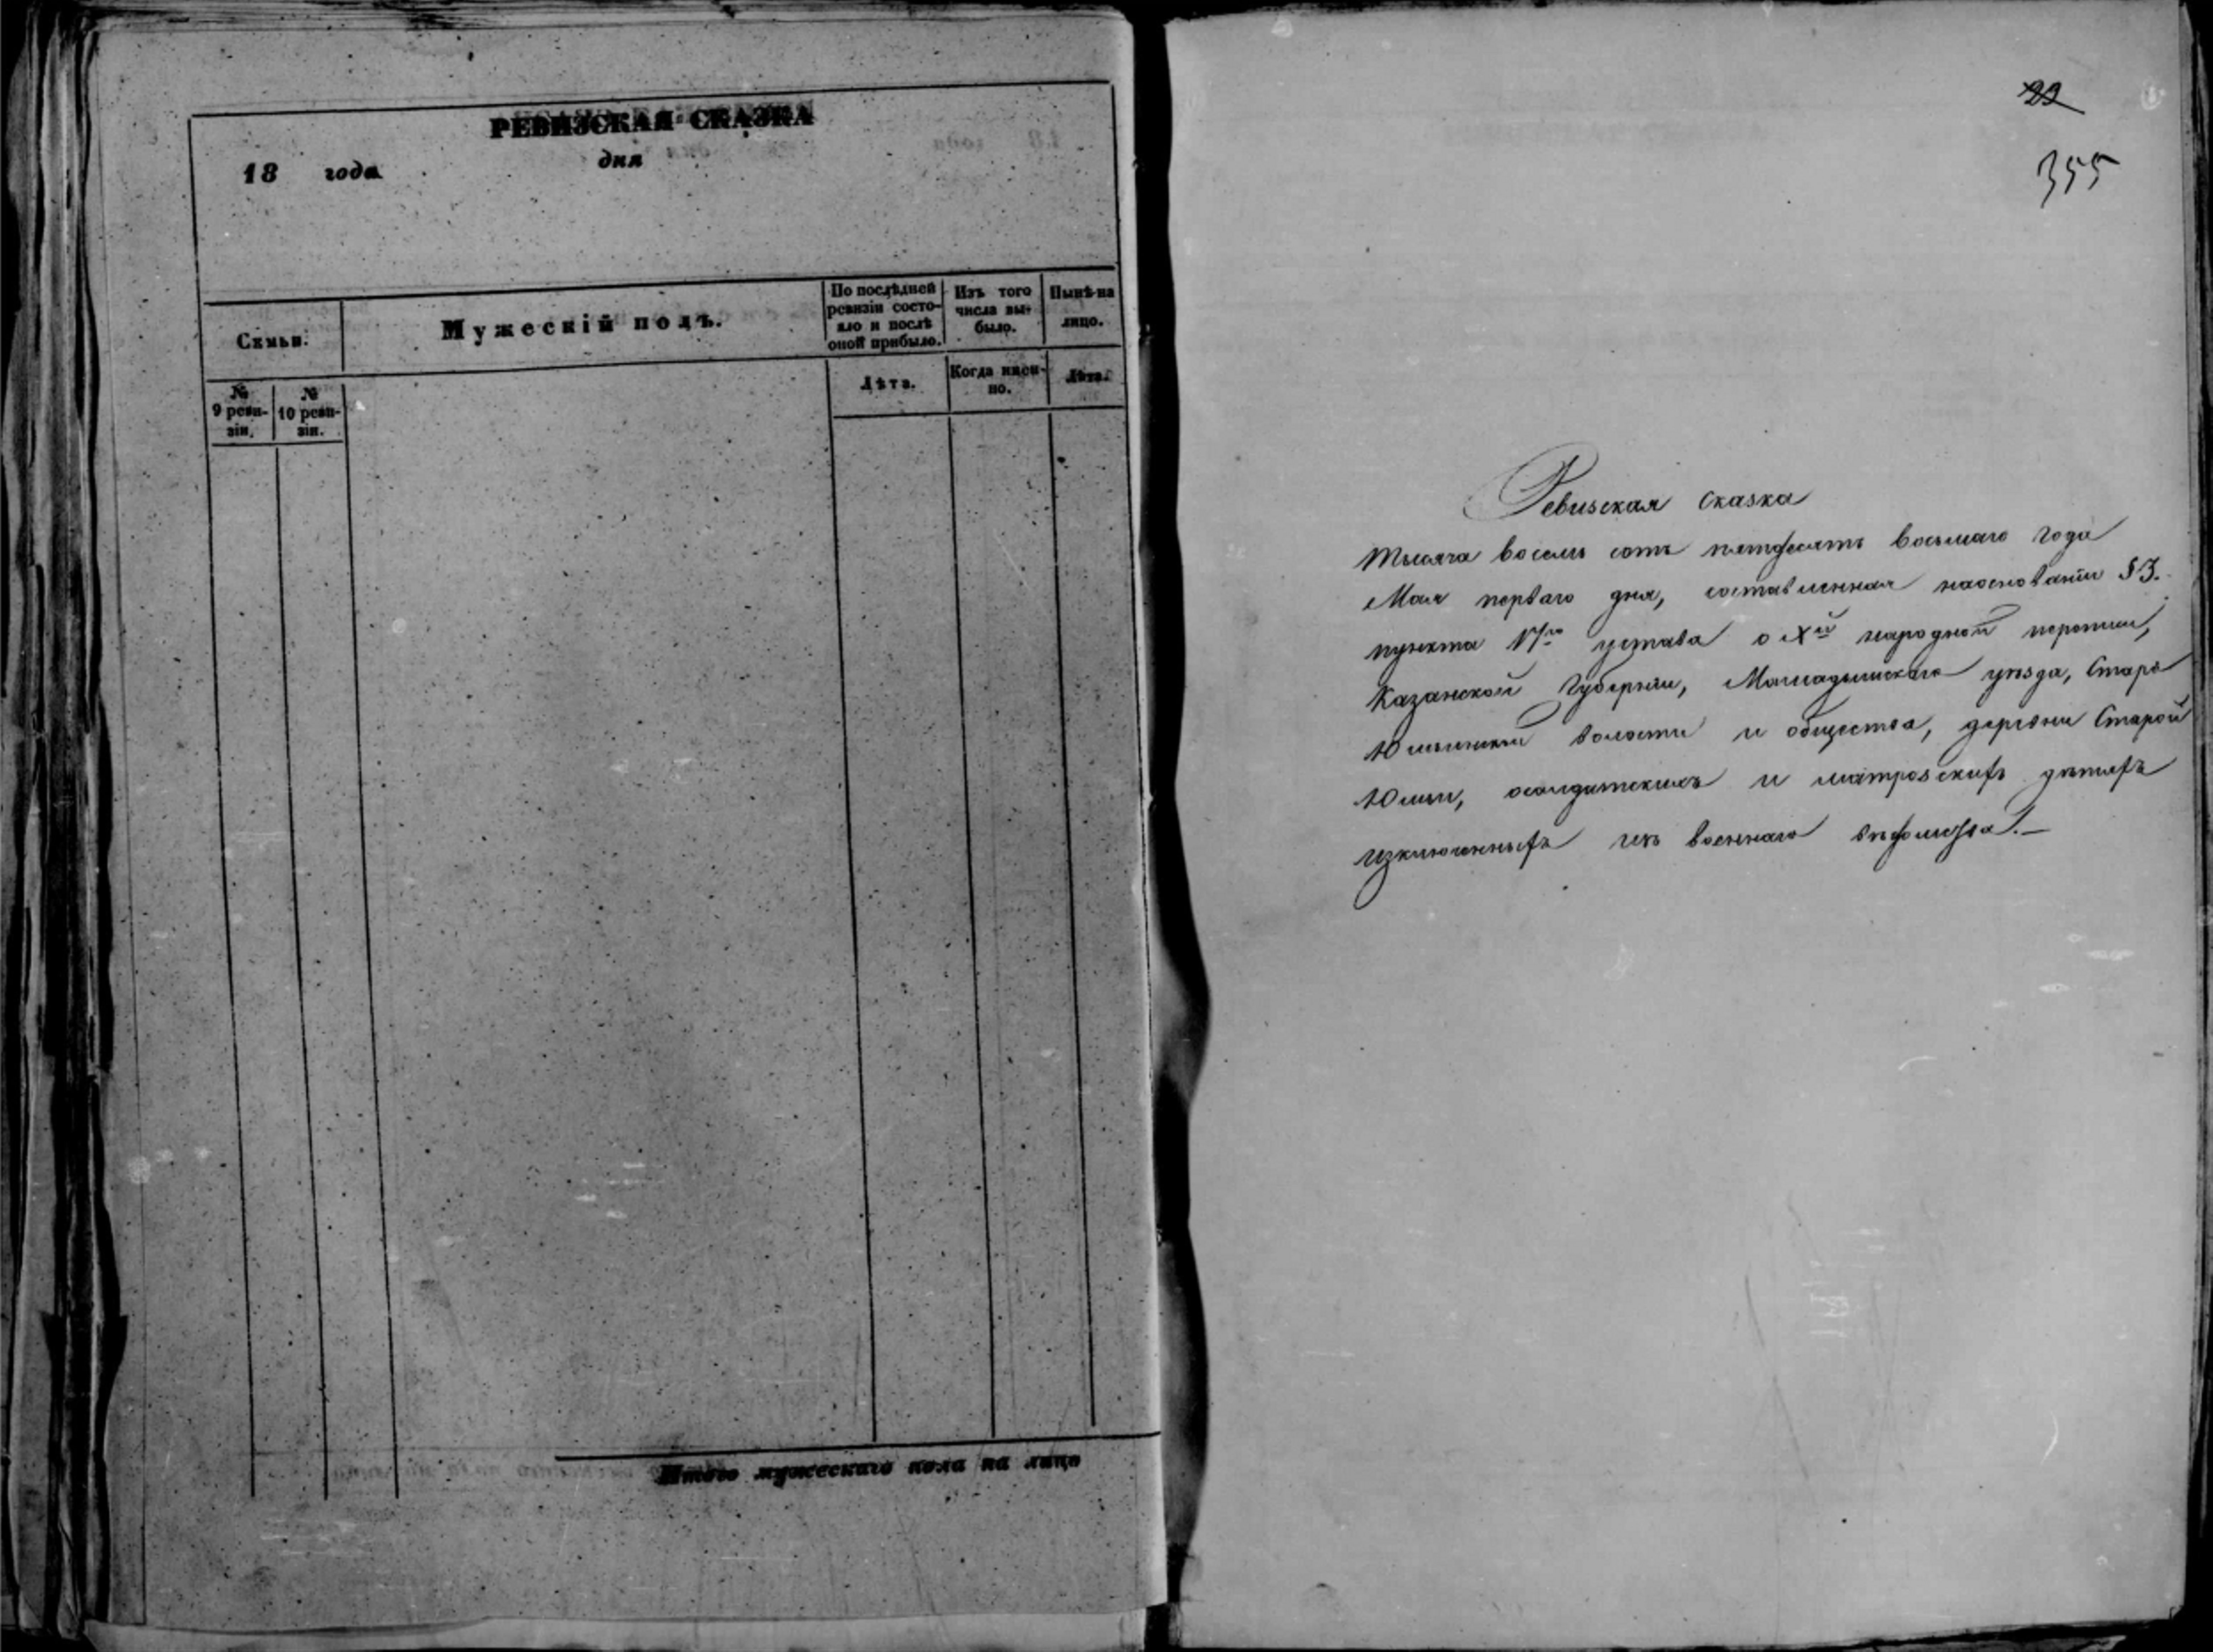 РЕВИЗСКАЯ СКАЗКА
18 года дня
Семьи.
Мужескій полъ.
По послѣдней ревизіи состояло и послѣ оной прибыло.
Изъ того числа выбыло.
Нынѣ на лицо.
№ 9 ревизіи.
№ 10 ревизіи.
Лѣта.
Когда имянно.
Лѣта.
Итого мужескаго пола на лицо
22
355
Ревизская сказка
Тысяча восемь сотъ пятдесятъ восьмаго года
Мая перваго дня, составленная наосновании §3.
пункта устава о Xй народной переписи,
Казанской Губерніи, Мамадышскаго уѣзда, Старо
Юмьинской волости и общества, деревни Старой
Юмьи, осолдатскихъ и матрозскихъ дѣтяхъ
изключенныхъ изъ военнаго вѣдомства.—